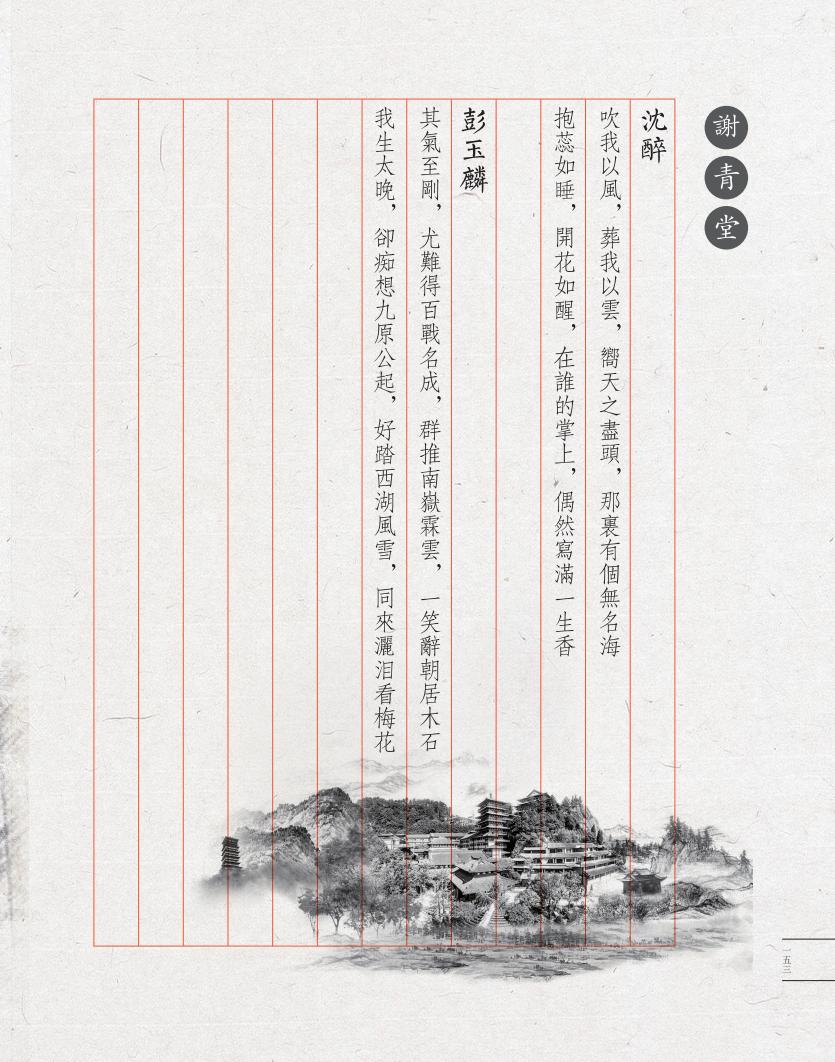 謝青堂
沈醉
吹我以風，葬我以雲，嚮天之盡頭，那裏有個無名海
抱蕊如睡，開花如醒，在誰的掌上，偶然寫滿一生香
彭玉麟
其氣至剛，尤難得百戰名成，群推南嶽霖雲，一笑辭朝居木石
我生太晚，卻痴想九原公起，好踏西湖風雪，同來灑泪看梅花
一五三